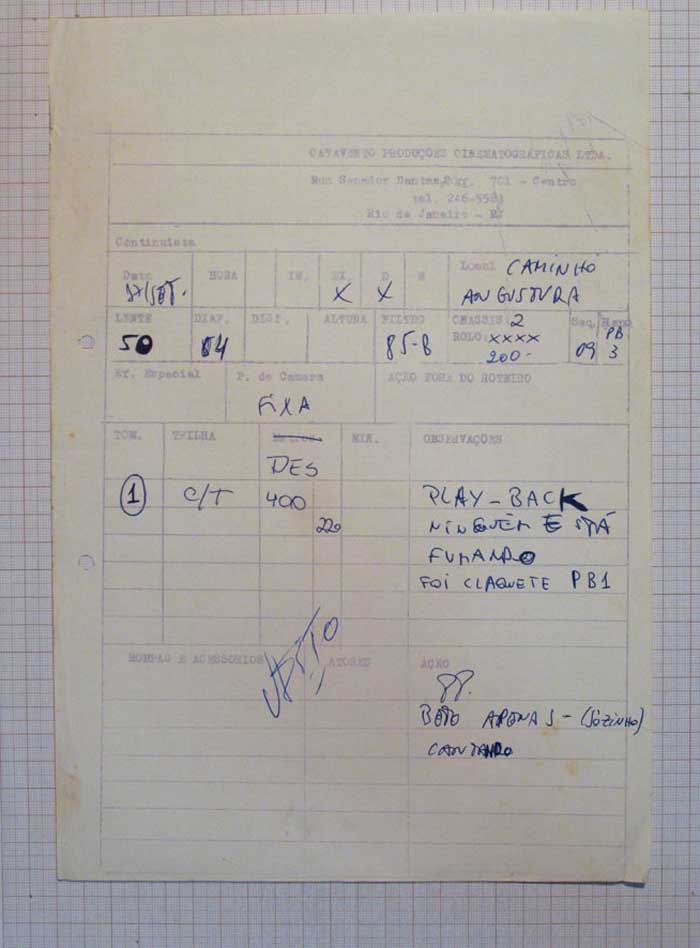 CATAVENTO PRODUÇÕES CINEMATOGRÁFICAS LTDA.
Rua Senador Dantas, 701 - Centro
tel. 246-5581
Rio de Janeiro - RJ
Continuista
Data HORA IN. EX. D N Local CAMINHO
X X ANGUSTURA
LENTE DIAF. DIST. ALTURA FILTRO CHASSIS: 2 Seq. Plano
50 04 85-B ROLO: XXXX 09 PB
200- 3
Ef. Especial P. de Camera AÇÃO FORA DO ROTEIRO
FIXA
TOM. TRILHA MIN. OBSERVAÇÕES
DES
1 C/T 400 PLAY-BACK
220 NINGUÉM ESTÁ
FUMANDO
FOI CLAQUETE PB1
ROUPAS E ACESSORIOS ATORES AÇÃO
PP.
BETO APENAS - (SÓZINHO)
CANTANDO